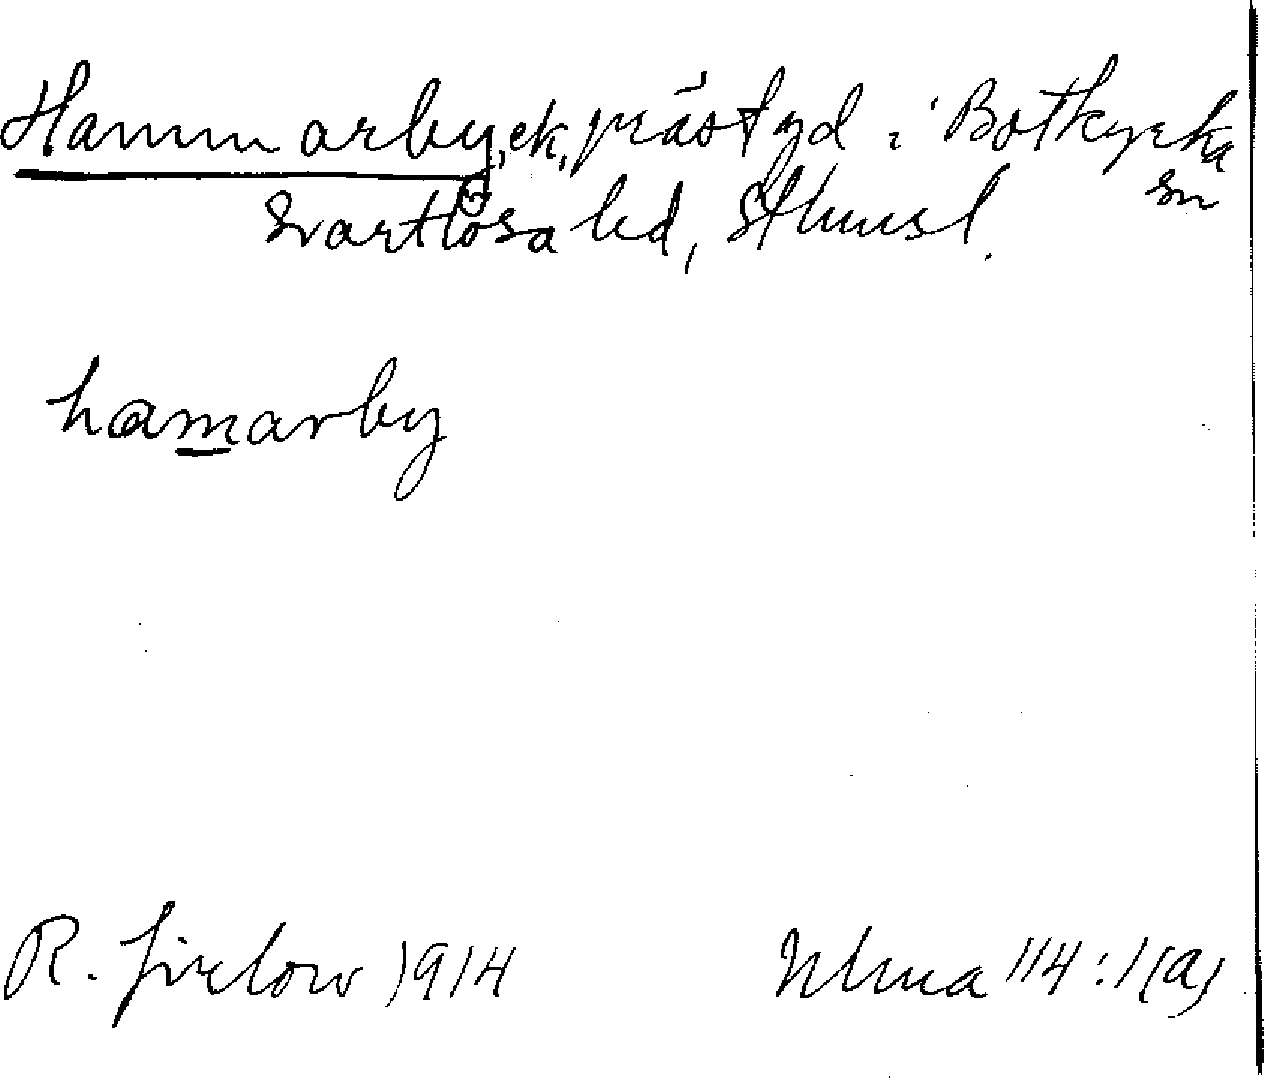 Hammarby, ek, prästgd i Botkyrka
sn
Svartlösa hd, Sthmsl.
hamarby
R. 1914
Ulma 114:1(a)